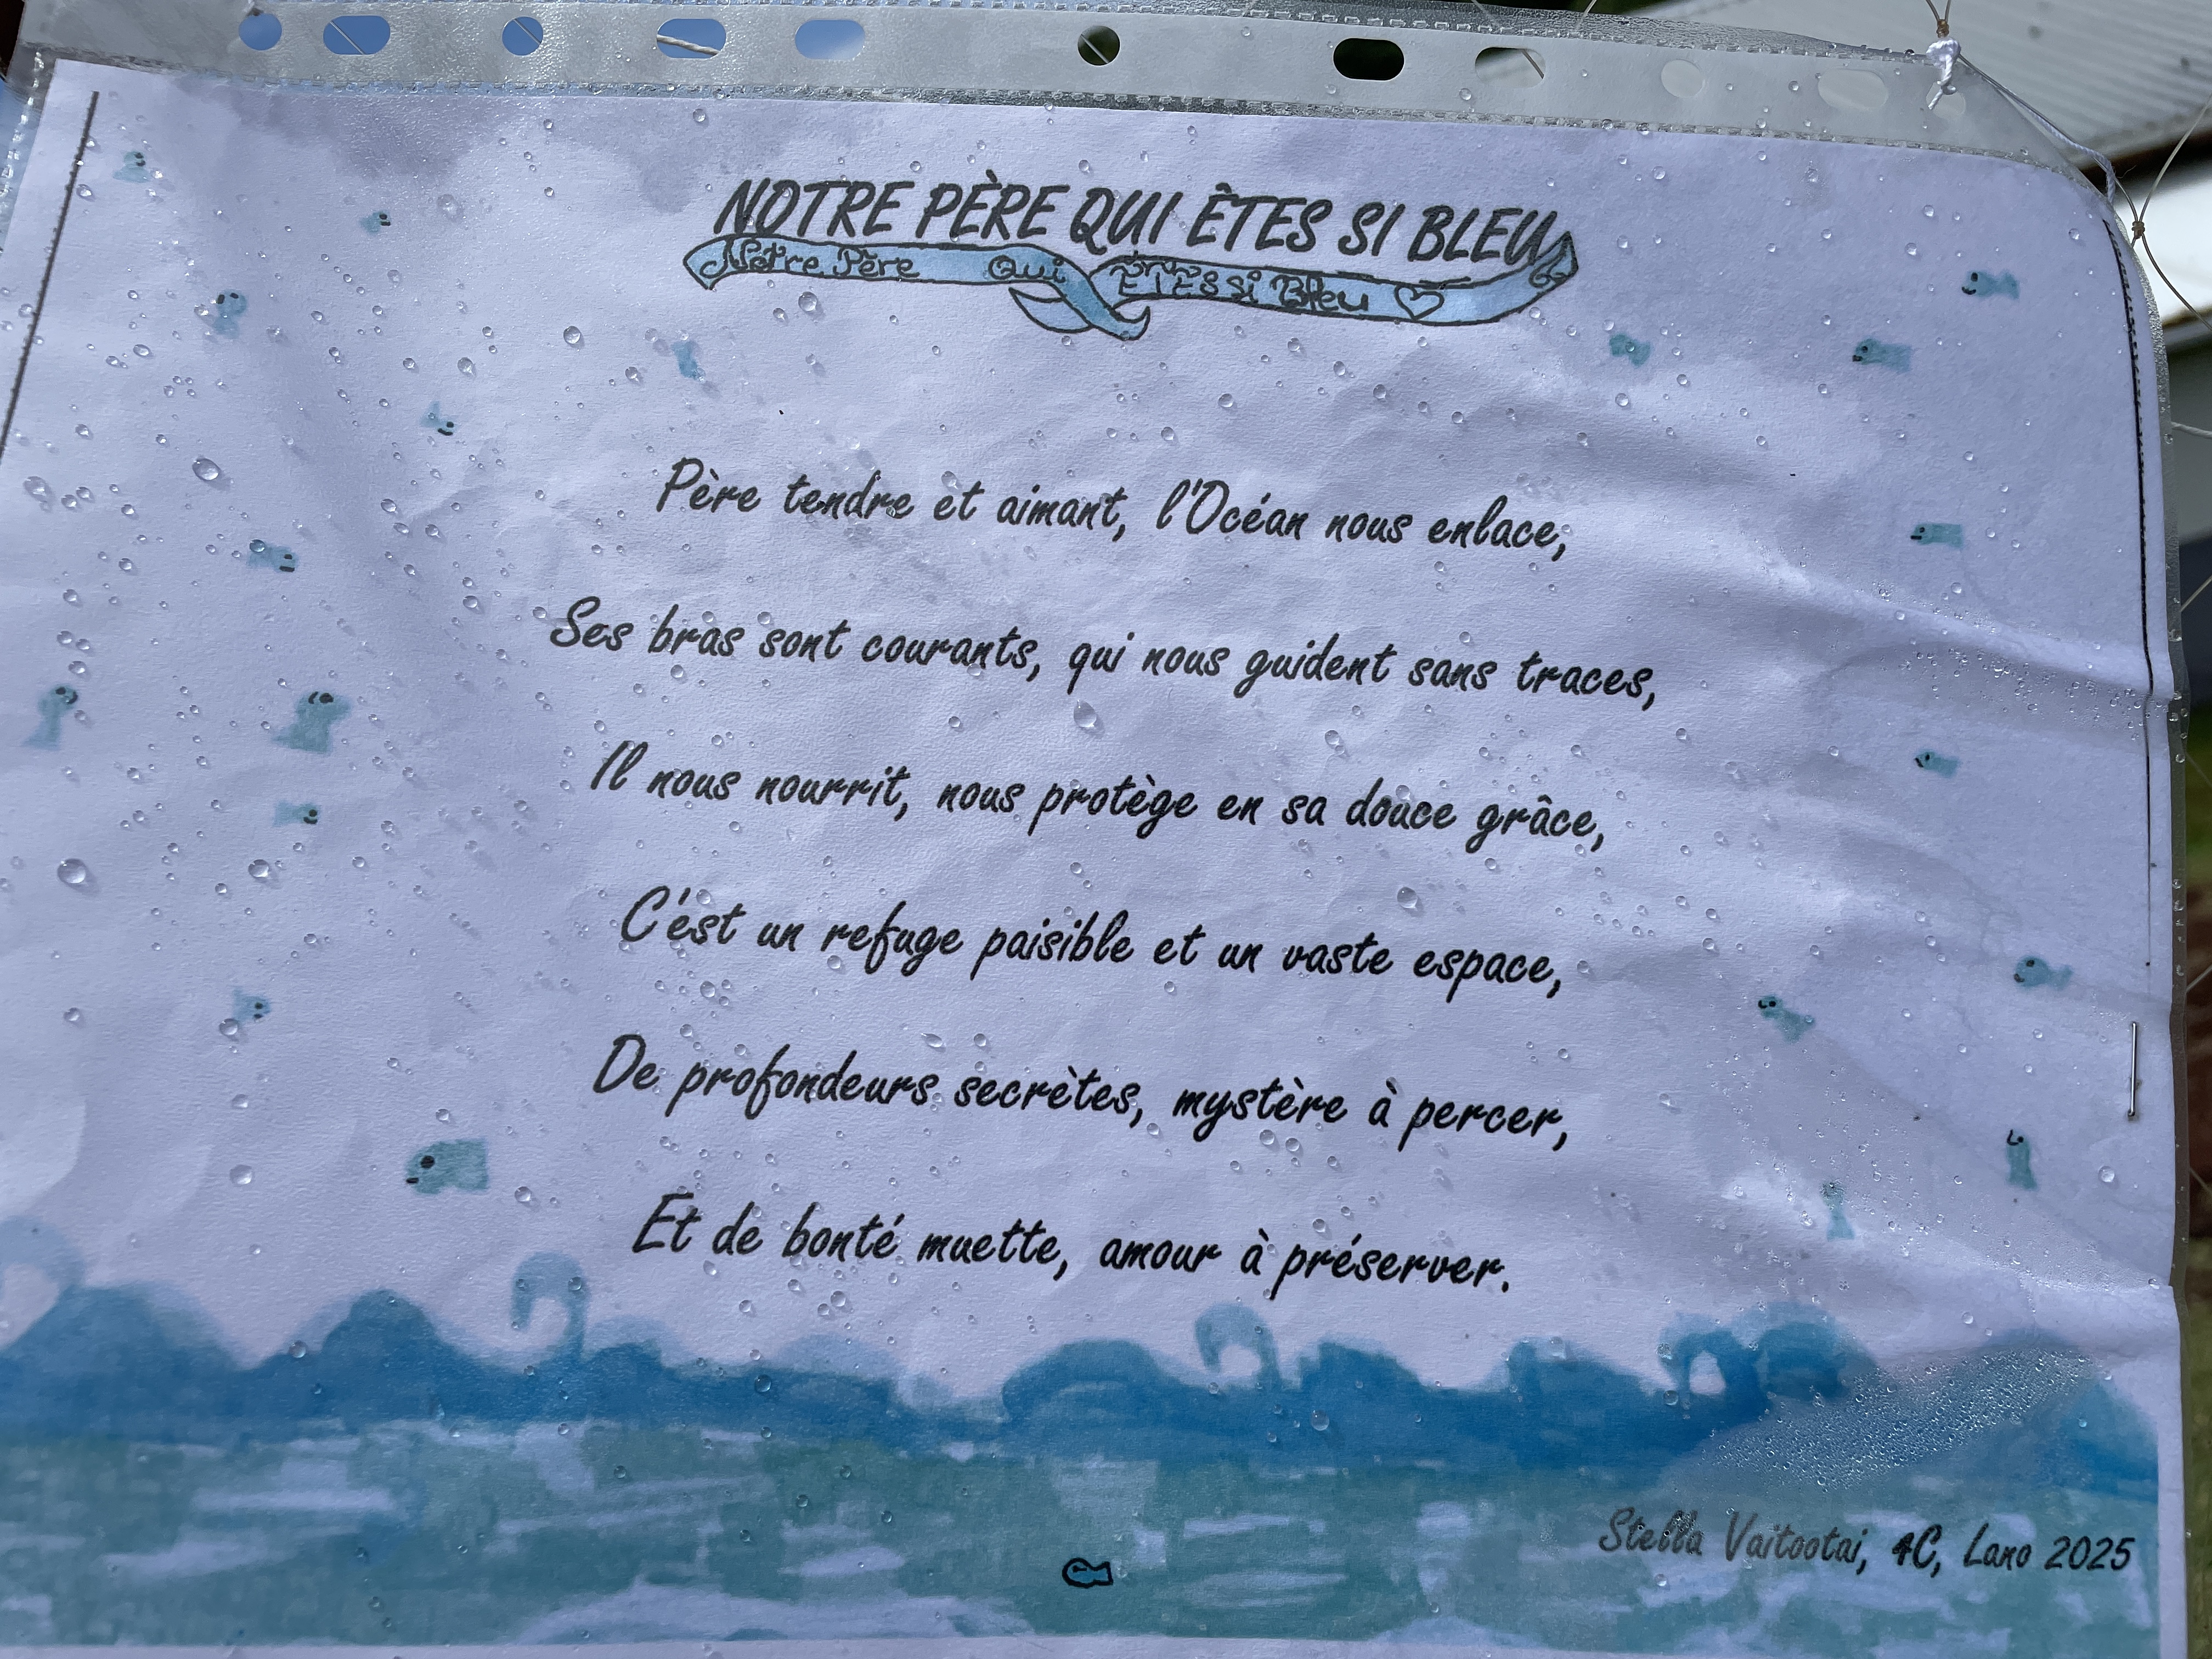 NOTRE PÈRE QUI ÊTES SI BLEU
Notre Père Qui ÊTES si Bleu
Père tendre et aimant, l'Océan nous enlace,
Ses bras sont courants, qui nous guident sans traces,
Il nous nourrit, nous protège en sa douce grâce,
C'est un refuge paisible et un vaste espace,
De profondeurs secrètes, mystère à percer,
Et de bonté muette, amour à préserver.
Stella Vaitootai, 4C, Lano 2025